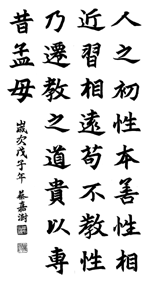 人之初性本善性相
近習相遠苟不教性
乃遷教之道貴以專
昔孟母
歲次戊子年 蔡嘉澍